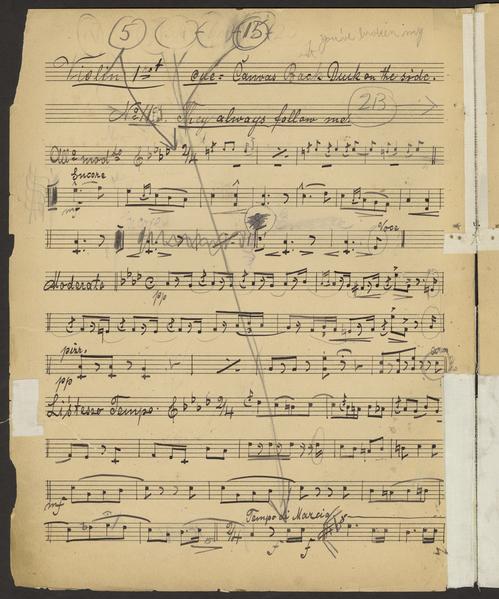 5 15
you've broken my
Violin 1st cue = Canvas Back Duck on the side.
They always follow me. 2B
All° modto 2/4
Encore
mf
Voce
Moderato pp
pizz.
pp
L'istesso Tempo. 2/4
mf
Tempo di Marcia
2/4 f f